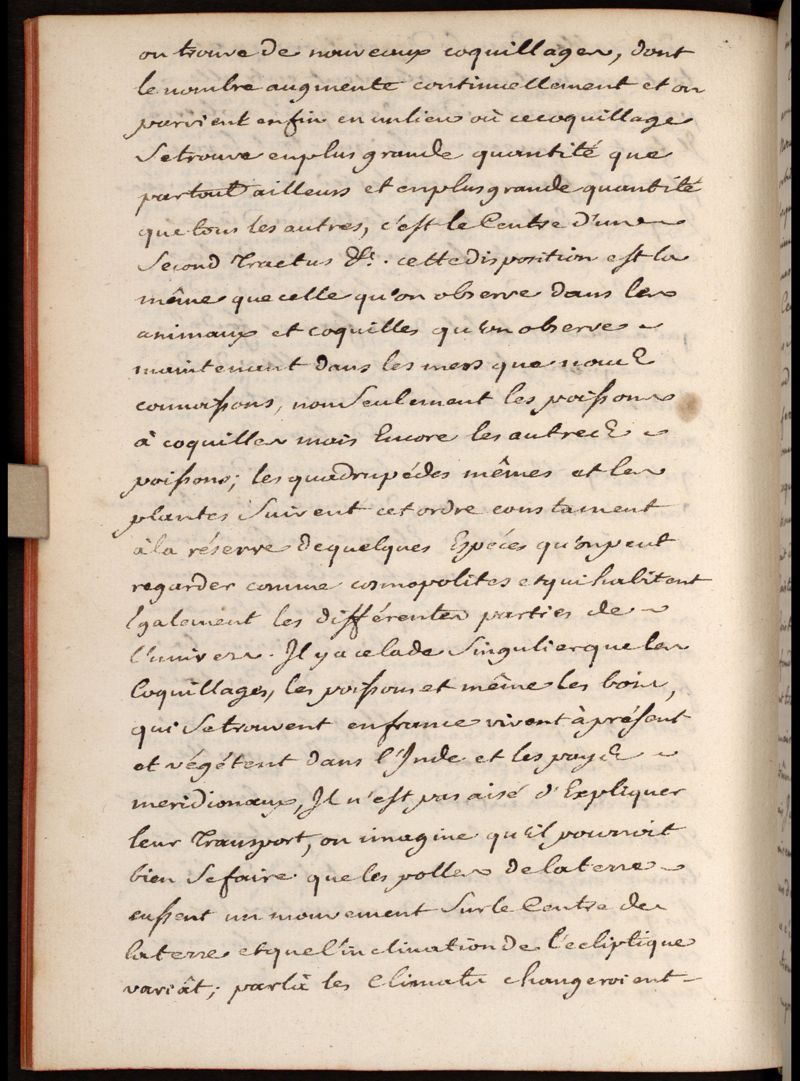 on trouve de nouveaux coquillages, dont
le nombre augmente continuellement et on
parvient enfin en un lieu où ce coquillage
se trouve en plus grande quantité que
partout ailleurs et en plus grande quantité
que tous les autres, c'est le Centre d'un
Second Tractus &c. cette disposition est la
même que celle qu'on observe dans les
animaux et coquilles qu'on observe
maintenant dans les mers que nous
connoissons, non seulement les poissons
à coquilles mais Encore les autres
poissons; les quadrupédes mêmes et les
plantes Suivent cet ordre constament
à la réserve de quelques Espéces qu'on peut
regarder comme cosmopolites et qui habitent
Egalement les différentes parties de
l'univers. Il y a cela de Singulier que les
Coquillages, les poissons et même les bois,
qui Se trouvent en france vivent à présent
et végétent dans l'Inde et les pays
meridionaux, Il n'est pas aisé d'Expliquer
leur Transport, on imagine qu'il pourroit
bien Se faire que les polles de la terre
eussent un mouvement Sur le Centre de
la terre et que l'inclination de l'écliptique
variât; par là les Climats changeroient